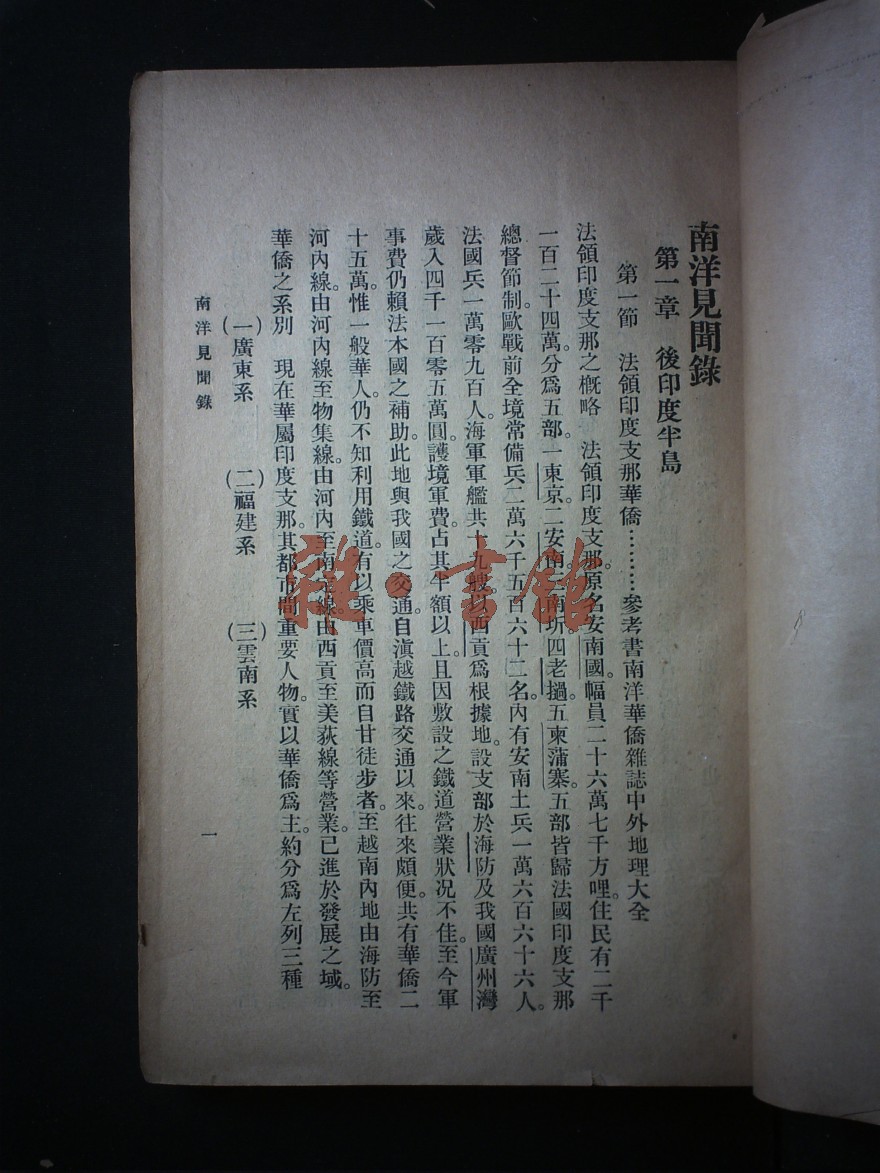 南洋見聞錄
第一章　後印度半島
第一節　法領印度支那華僑………參考書南洋華僑雜誌中外地理大全
法領印度支那之槪略　法領印度支那。原名安南國。幅員二十六萬七千方哩。住民有二千
一百二十四萬。分爲五部。一東京。二安南。南圻。四老撾。五柬蒲寨。五部皆歸法國印度支那
總督節制。歐戰前全境常備兵二萬六千五百六十二名。內有安南土兵一萬六百六十六人。
法國兵一萬零九百人。海軍軍艦共十九艘。以西貢爲根據地。設支部於海防及我國廣州灣
歲入四千一百零五萬圓。護境軍費。占其半額以上。且因敷設之鐵道營業狀况不佳。至今軍
事費仍賴法本國之補助。此地與我國之交通。自滇越鐵路交通以來。往來頗便。共有華僑二
十五萬。惟一般華人。仍不知利用鐵道。有以乘車價高而自甘徒步者。至越南內地由海防至
河內線。由河內線至物集線。由河內至南定線。由西貢至美荻線等營業。已進於發展之域。
華僑之系別　現在華屬印度支那。其都市間重要人物。實以華僑爲主。約分爲左列三種
(一)廣東系　(二)福建系　(三)雲南系
南洋見聞錄
一
雜·書館